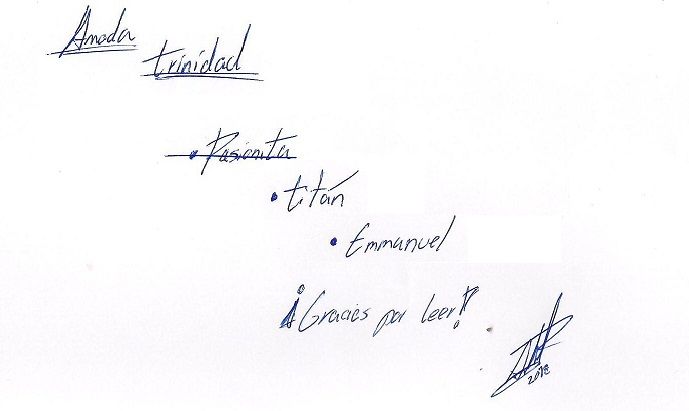 Amada
trinidad
• Pasionita
• titán
• Emmanuel
¡Gracias por leer!
2018